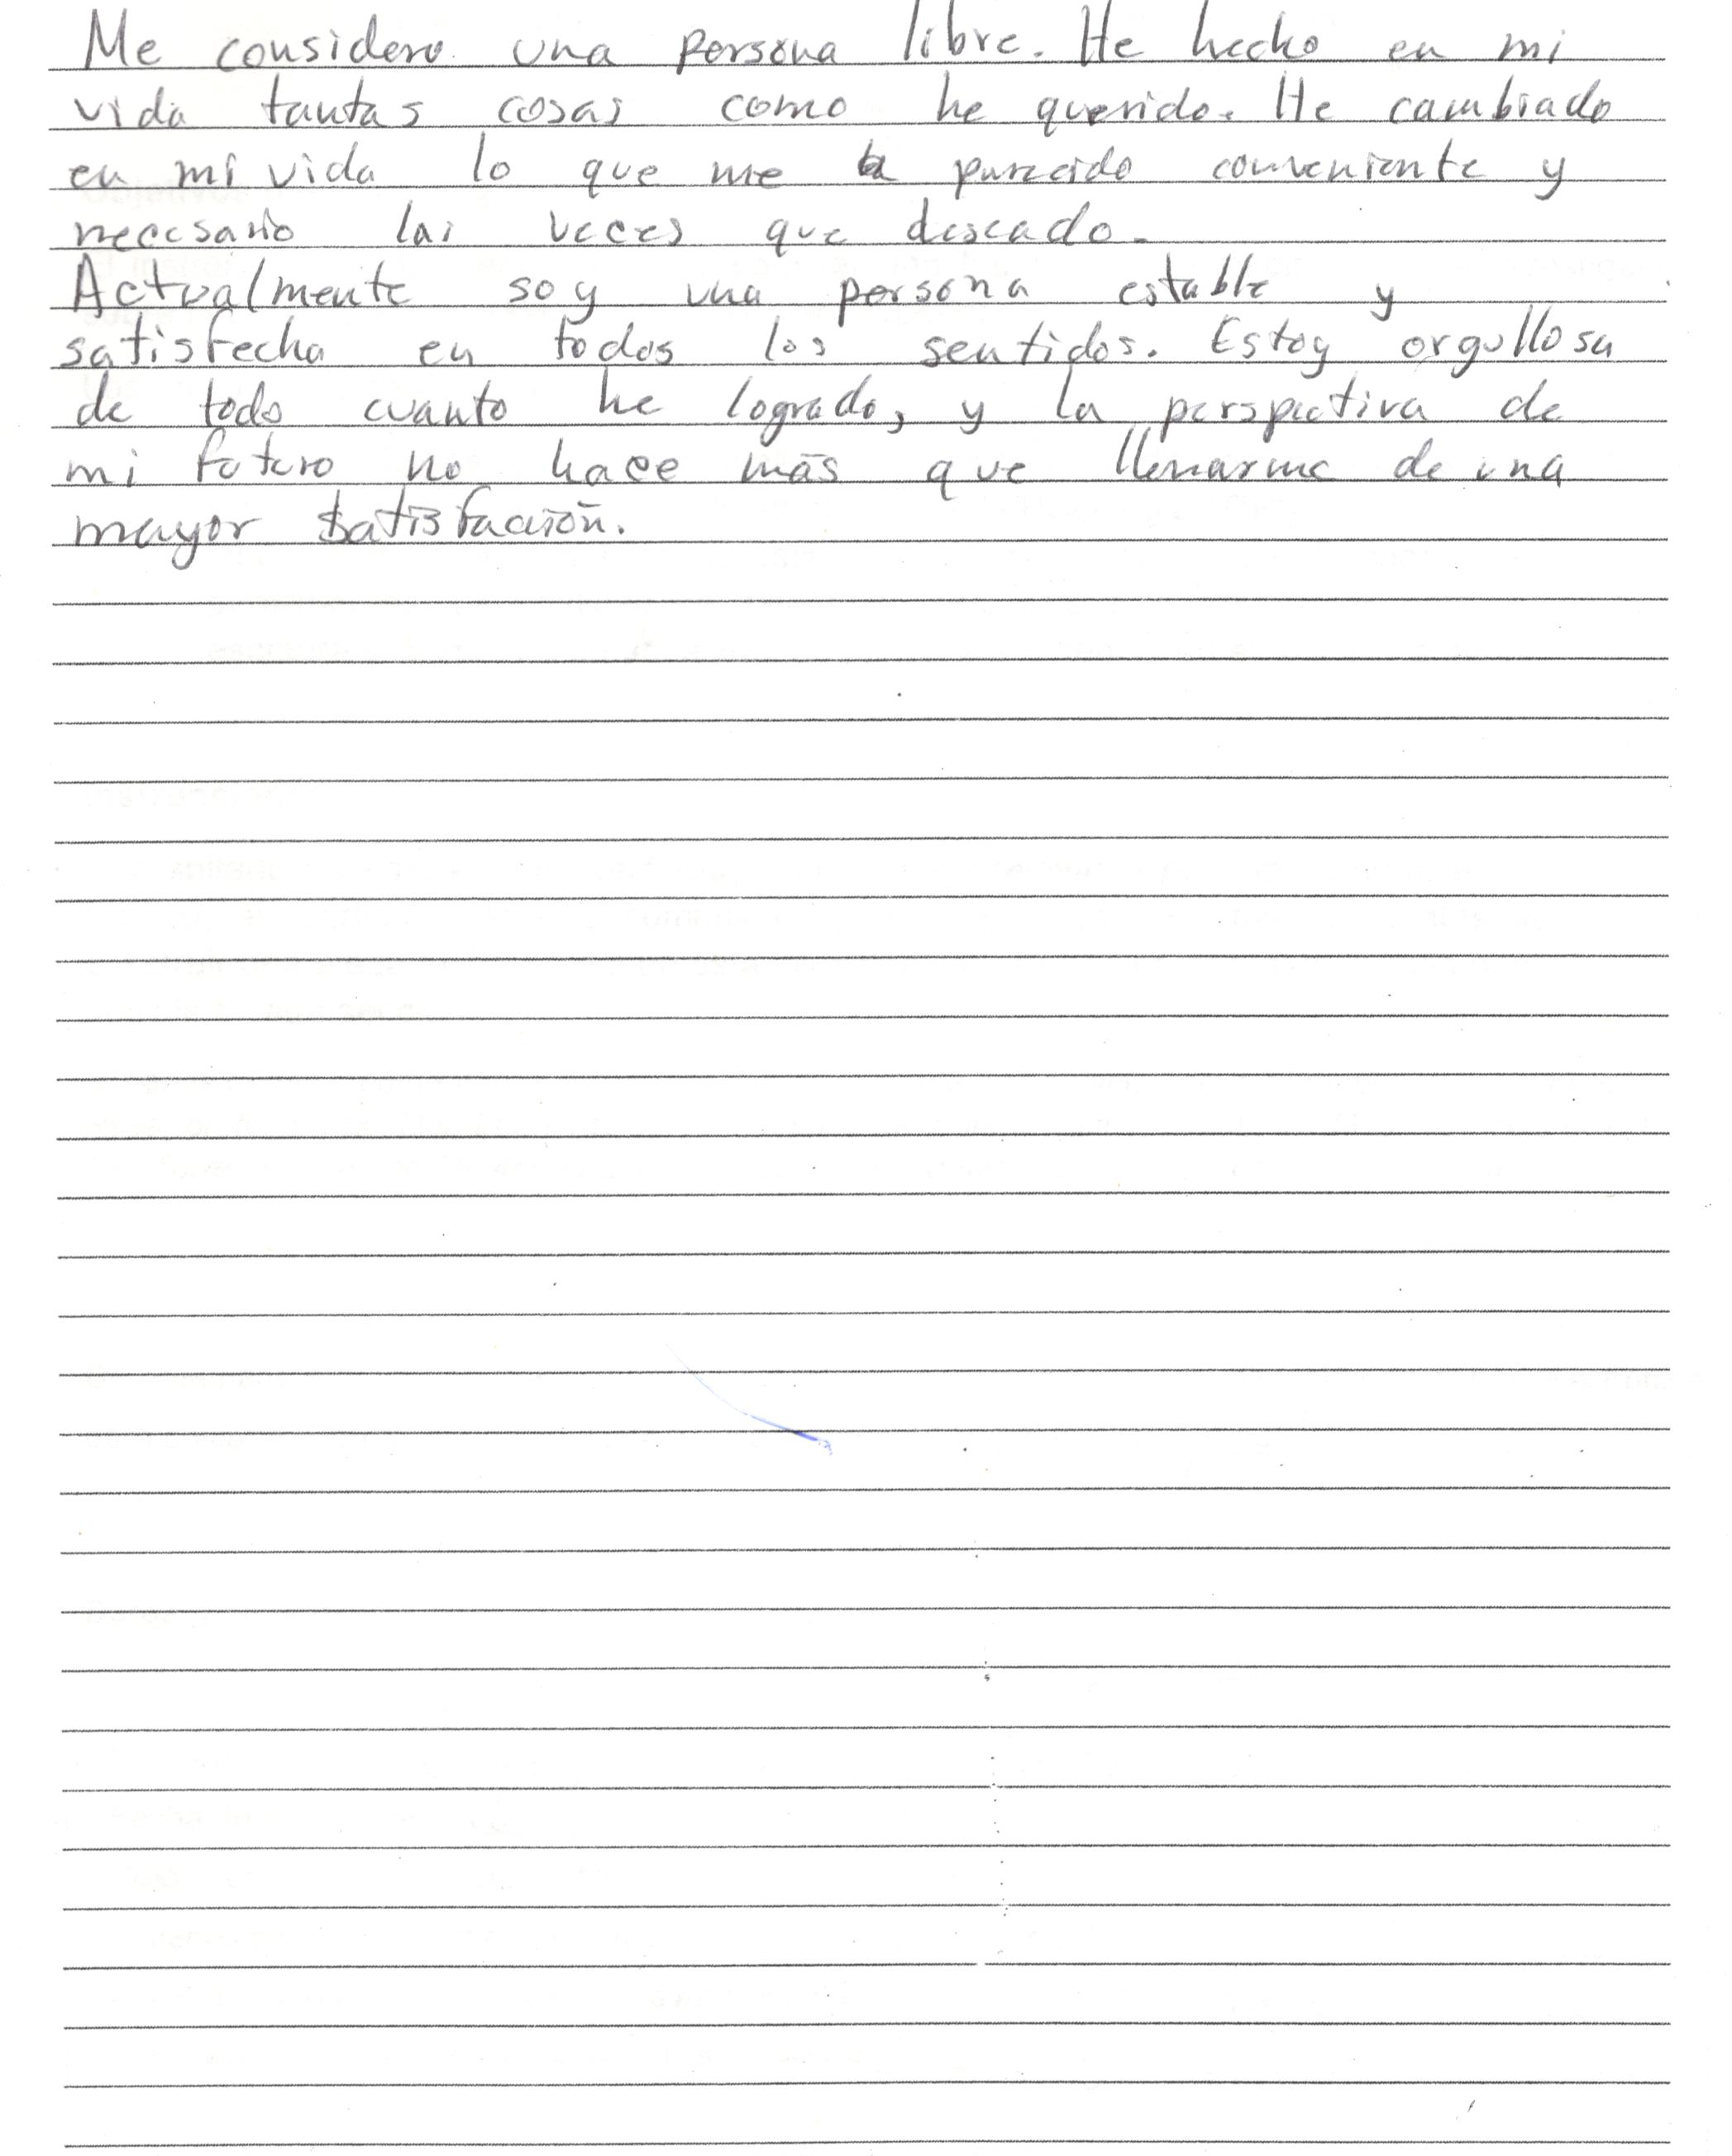 Me considero una persona libre. He hecho en mi
vida tantas cosas como he querido. He cambiado
en mi vida lo que me ha parecido conveniente y
necesario las veces que deseado.
Actualmente soy una persona estable y
satisfecha en todos los sentidos. Estoy orgullosa
de todo cuanto he logrado, y la perspectiva de
mi futuro no hace más que llenarme de una
mayor satisfación.